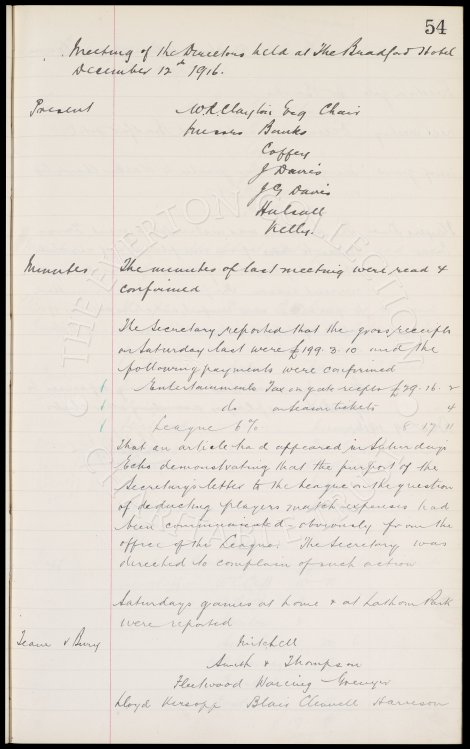 54
Meeting of the Directors held at The Bradford Hotel
December 12th 1916.
Present W R Clayton Esq Chair
Messrs Banks
Coffey
J Davies
J G Davis
Halsall
Kelly.
Minutes The minutes of last meeting were read &
confirmed
The Secretary reported that the gross receipts
on Saturday last were £199.3.10 and the
following payments were confirmed
Entertainments Tax on gate receipts £29.16.2
do on season tickets 4
League 6% 8 17 11
That an article had appeared in Saturdays
Echo demonstrating that the purport of the
Secretary's letter to the League on the question
of deducting players match expenses had
been communicated - obviously from the
office of the League. The Secretary was
directed to complain of such action
Saturdays games at home & at Lathom Park
were reported
Team v Bury Mitchell
Smith & Thompson
Fleetwood Wareing Grenyer
Lloyd Kirsopp Blair Clennell Harrison
THE EVERTON COLLECTION